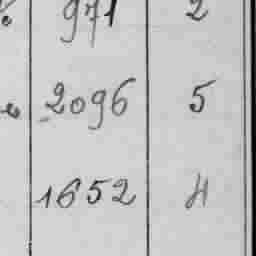 971 2
2096 5
1652 4